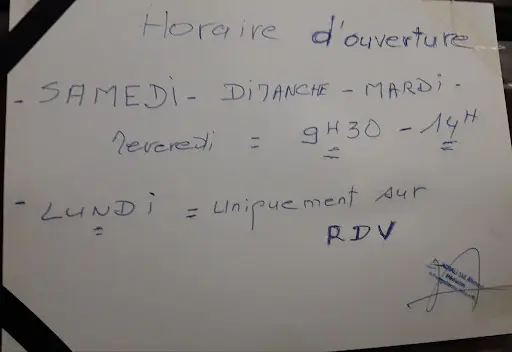 Horaire d'ouverture
- SAMEDI - DIMANCHE - MARDI -
Mercredi = 9H30 - 14H
- LUNDI = Uniquement sur
RDV